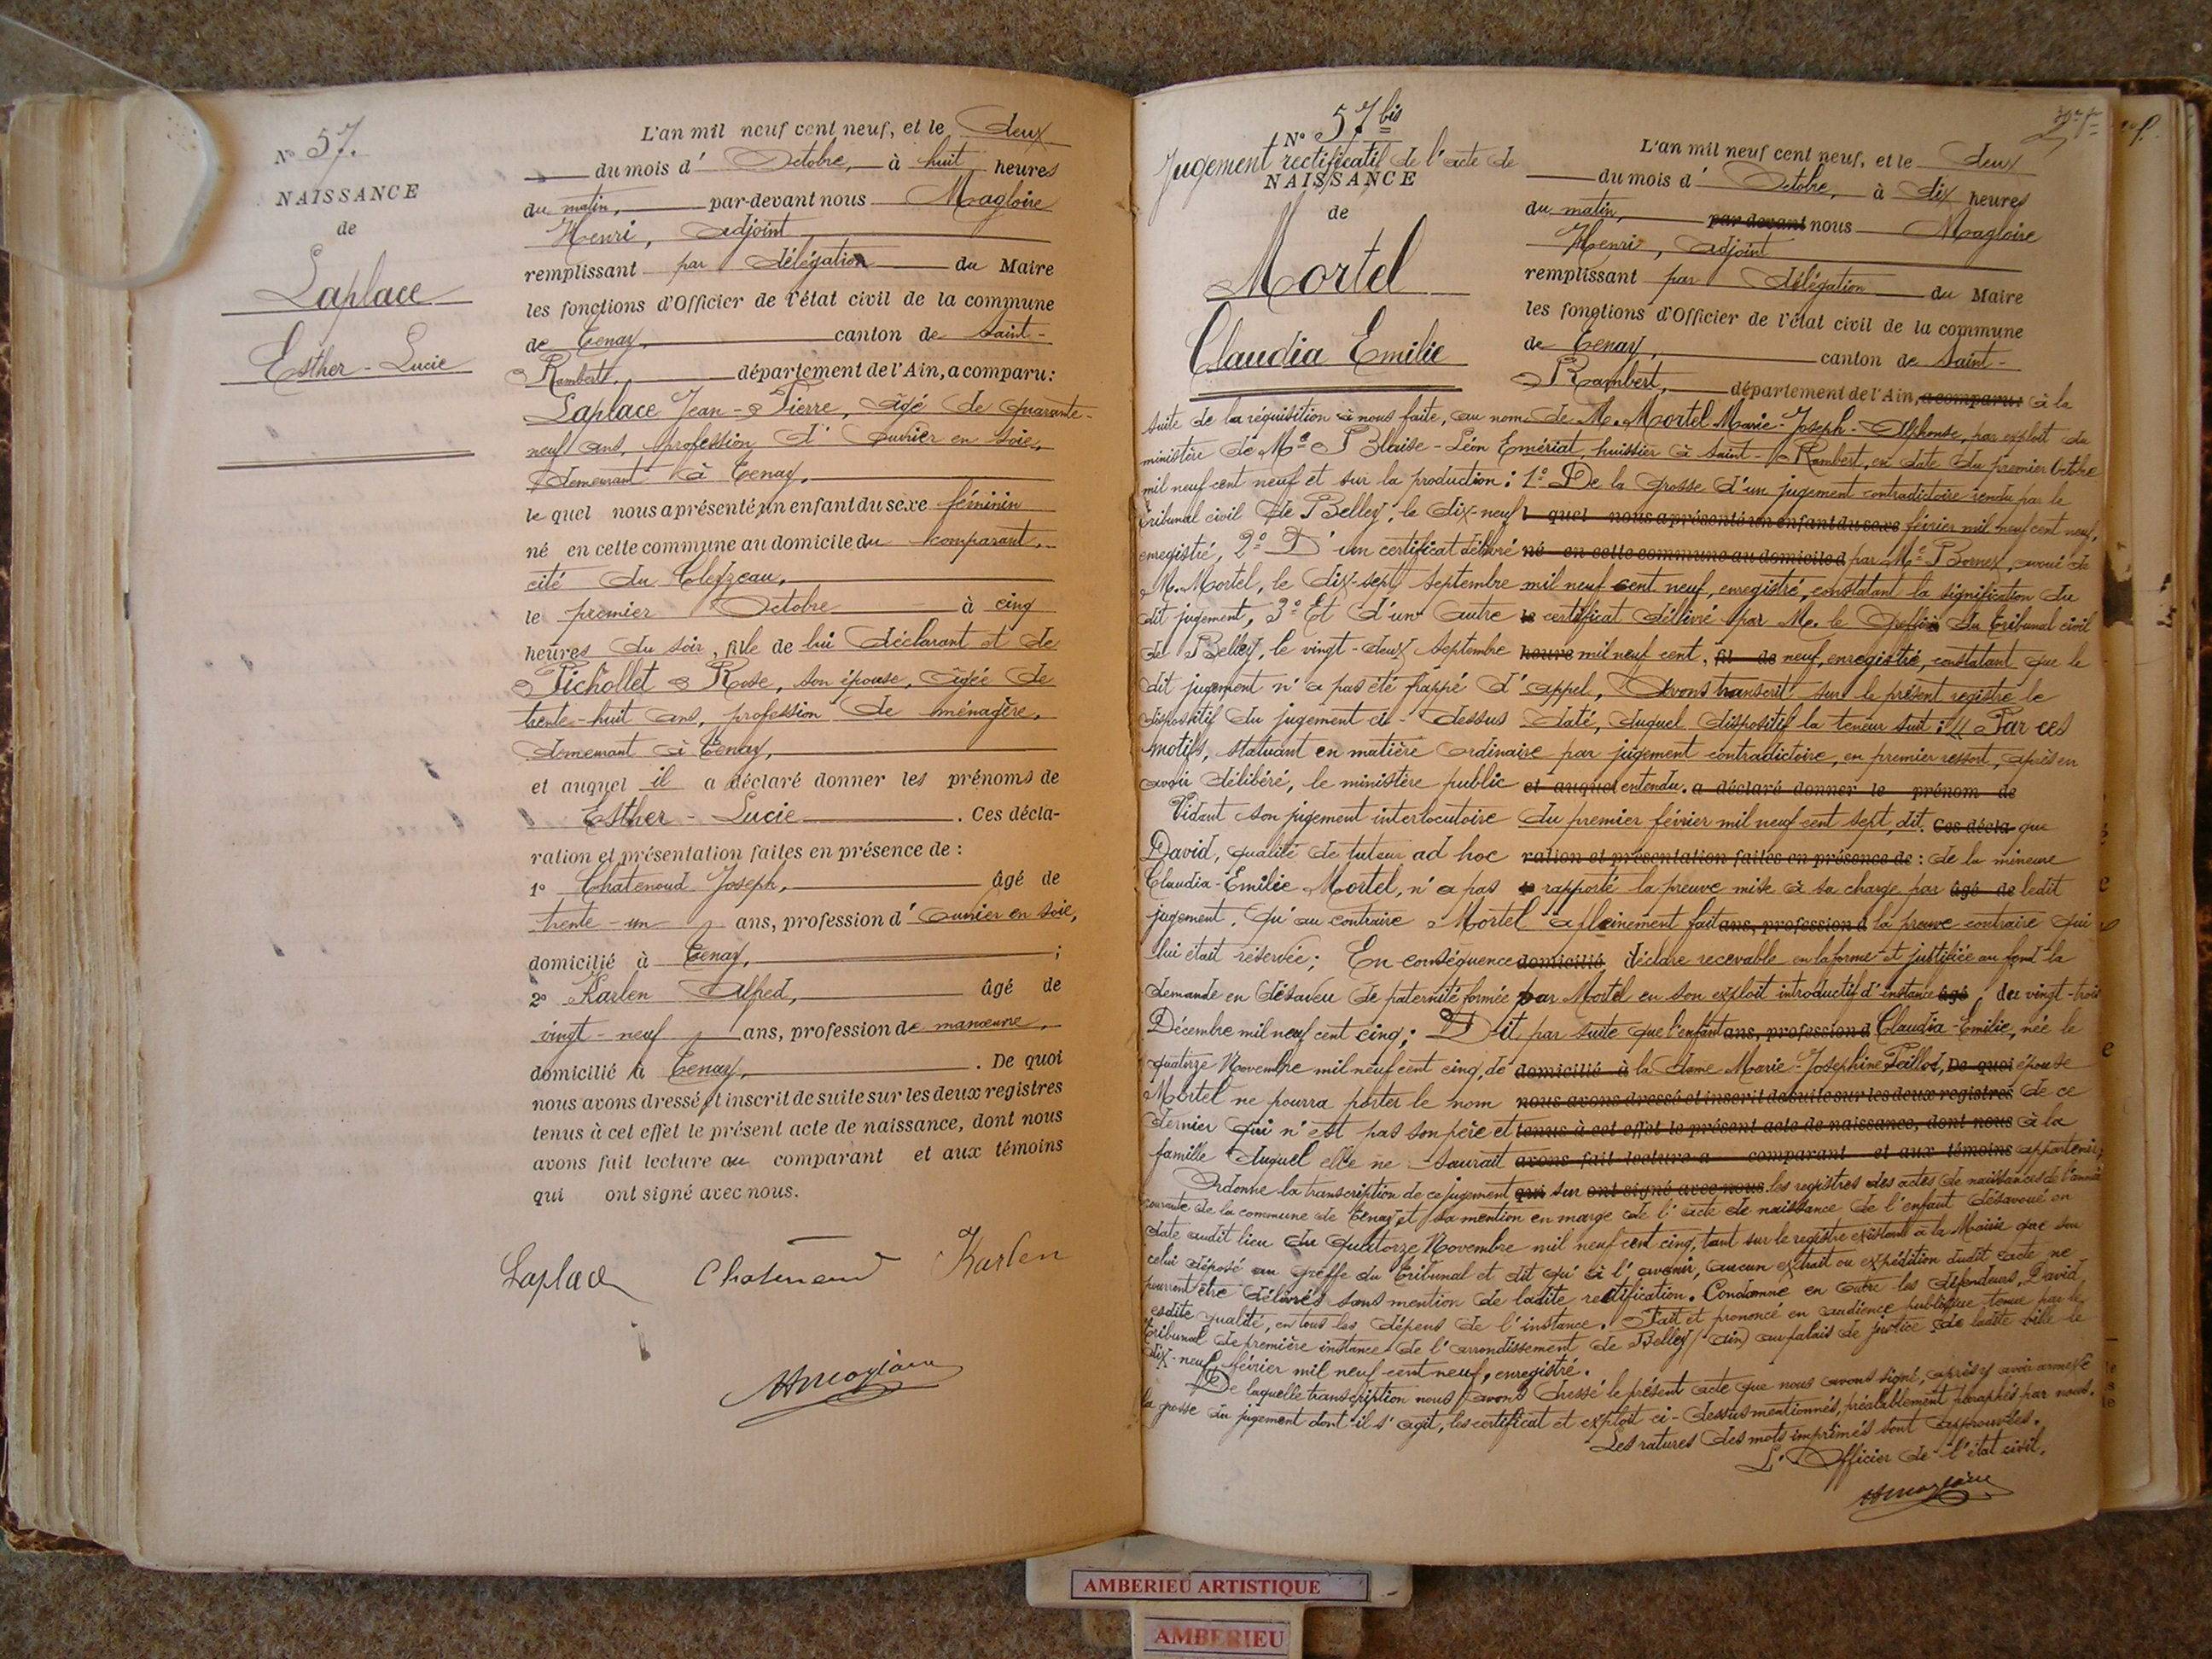 N° 57.
NAISSANCE
de
Laplace
Esther - Lucie
L'an mil neuf cent neuf, et le deux
du mois d' Octobre, à huit heures
du matin, par-devant nous Magloire
Henri, adjoint
remplissant par délégation du Maire
les fonctions d'Officier de l'état civil de la commune
de Tenay, canton de Saint-
Rambert, département de l'Ain, a comparu:
Laplace Jean-Pierre, âgé de quarante-
neuf ans, profession d'ouvrier en soie,
demeurant à Tenay,
le quel nous a présenté un enfant du sexe féminin
né en cette commune au domicile du comparant,
cité du Cleyzeau,
le premier Octobre à cinq
heures du soir, fille de lui déclarant et de
Pichollet Rose, son épouse, âgée de
trente-huit ans, profession de ménagère,
demeurant à Tenay,
et auquel il a déclaré donner les prénoms de
Esther - Lucie. Ces décla-
ration et présentation faites en présence de :
1° Chatenoud Joseph, âgé de
trente-un ans, profession d'ouvrier en soie,
domicilié à Tenay, ;
2° Karlen Alfred, âgé de
vingt-neuf ans, profession de manœuvre,
domicilié à Tenay, . De quoi
nous avons dressé et inscrit de suite sur les deux registres
tenus à cet effet le présent acte de naissance, dont nous
avons fait lecture au comparant et aux témoins
qui ont signé avec nous.
Laplace Chatenoud Karlen
N° 57 bis
Jugement rectificatif de l'acte de
NAISSANCE
de
Mortel
Claudia Emilie
L'an mil neuf cent neuf, et le deux
du mois d' Octobre, à dix heures
du matin, par-devant nous Magloire
Henri, adjoint
remplissant par délégation du Maire
les fonctions d'Officier de l'état civil de la commune
de Tenay, canton de Saint-
Rambert, département de l'Ain, a comparu: à la
suite de la réquisition à nous faite, au nom de M. Mortel Marie-Joseph-Alphonse, par exploit du
ministère de Me Blaise-Léon Emériat, huissier à Saint-Rambert, en date du premier Octobre
mil neuf cent neuf et sur la production : 1° De la grosse d'un jugement contradictoire rendu par le
tribunal civil de Belley, le dix-neuf l quel nous a présenté un enfant du sexe février mil neuf cent neuf,
enregistré, 2° D'un certificat délivré né en cette commune au domicile d par Me Bornex, avoué de
M. Mortel, le dix-sept septembre mil neuf cent neuf, enregistré, constatant la signification du
dit jugement, 3° Et d'un autre le certificat délivré par M. le Greffier du tribunal civil
de Belley, le vingt-deux septembre heure mil neuf cent, fil de neuf, enregistré, constatant que le
dit jugement n'a pas été frappé d'appel, Avons transcrit sur le présent registre le
dispositif du jugement ci-dessus daté, duquel dispositif la teneur suit : « Par ces
motifs, statuant en matière ordinaire par jugement contradictoire, en premier ressort, après en
avoir délibéré, le ministère public et auquel entendu. a déclaré donner le prénom de
Vidant son jugement interlocutoire du premier février mil neuf cent sept, dit. Ces décla que
David, qualité de tuteur ad hoc ration et présentation faites en présence de : de la mineure
Claudia-Emilie Mortel, n'a pas 1° rapporté la preuve mise à sa charge par âgé de ledit
jugement. Qu'au contraire Mortel a pleinement fait ans, profession d la preuve contraire qui
lui était réservée ; En conséquence domicilié déclare recevable en la forme et justifiée au fond la
demande en désaveu de paternité formée par Mortel en son exploit introductif d'instance âgé du vingt-trois
Décembre mil neuf cent cinq ; Dit par suite que l'enfant ans, profession d Claudia-Emilie, née le
quatorze Novembre mil neuf cent cinq, de domicilié à la dame Marie-Josephine Taillod, De quoi épouse
Mortel ne pourra porter le nom nous avons dressé et inscrit de suite sur les deux registres de ce
dernier qui n'est pas son père et tenus à cet effet le présent acte de naissance, dont nous à la
famille duquel elle ne saurait avons fait lecture a comparant et aux témoins appartenir ;
Ordonne la transcription de ce jugement qui sur ont signé avec nous. les registres des actes de naissances de l'année
courante de la commune de Tenay et sa mention en marge de l'acte de naissance de l'enfant désavoué en
date audit lieu du quatorze Novembre mil neuf cent cinq, tant sur le registre existant à la Mairie que sur
celui déposé au greffe du tribunal et dit qu'à l'avenir, aucun extrait ou expédition dudit acte ne
pourront être délivrés sans mention de ladite rectification. Condamne en outre les défendeurs, David
esdite qualité, en tous les dépens de l'instance. Fait et prononcé en audience publique tenue par le
tribunal de première instance de l'arrondissement de Belley (Ain) au palais de justice de ladite ville le
dix-neuf février mil neuf cent neuf, enregistré.
De laquelle transcription nous avons dressé le présent acte que nous avons signé, après y avoir annexé
la grosse du jugement dont il s'agit, les certificat et exploit ci-dessus mentionnés, préalablement paraphés par nous.
Les ratures des mots imprimés sont approuvées.
L'Officier de l'état civil,
AMBERIEU ARTISTIQUE
AMBERIEU